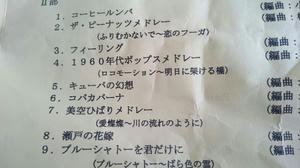 Ⅱ部
1．コーヒールンバ
2．ザ・ピーナッツメドレー
（ふりむかないで～恋のフーガ） （編曲：
3．フィーリング （編曲：
4．１９６０年代ポップスメドレー
（ロコモーション～明日に架ける橋） （編曲：
5．キューバの幻想
6．コパカバーナ （編曲
7．美空ひばりメドレー
（愛燦燦～川の流れのように） （編曲
8．瀬戸の花嫁
9．ブルーシャトーを君だけに （編曲：
（ブルーシャトー～ばら色の雲）